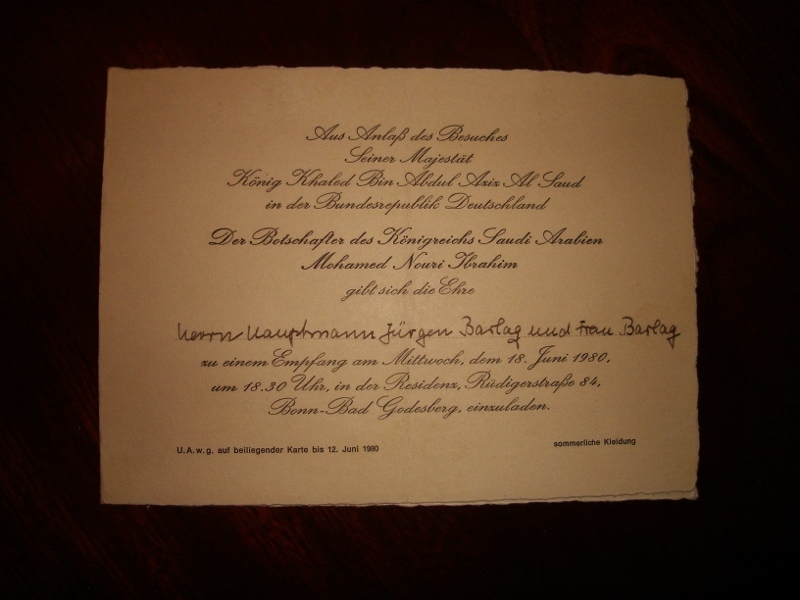 Aus Anlaß des Besuches
Seiner Majestät
König Khaled Bin Abdul Aziz Al Saud
in der Bundesrepublik Deutschland
Der Botschafter des Königreichs Saudi Arabien
Mohamed Nouri Ibrahim
gibt sich die Ehre
Herrn Hauptmann Jürgen Barlag und Frau Barlag
zu einem Empfang am Mittwoch, dem 18. Juni 1980,
um 18.30 Uhr, in der Residenz, Rüdigerstraße 84,
Bonn-Bad Godesberg, einzuladen.
U.A.w.g. auf beiliegender Karte bis 12. Juni 1980
sommerliche Kleidung